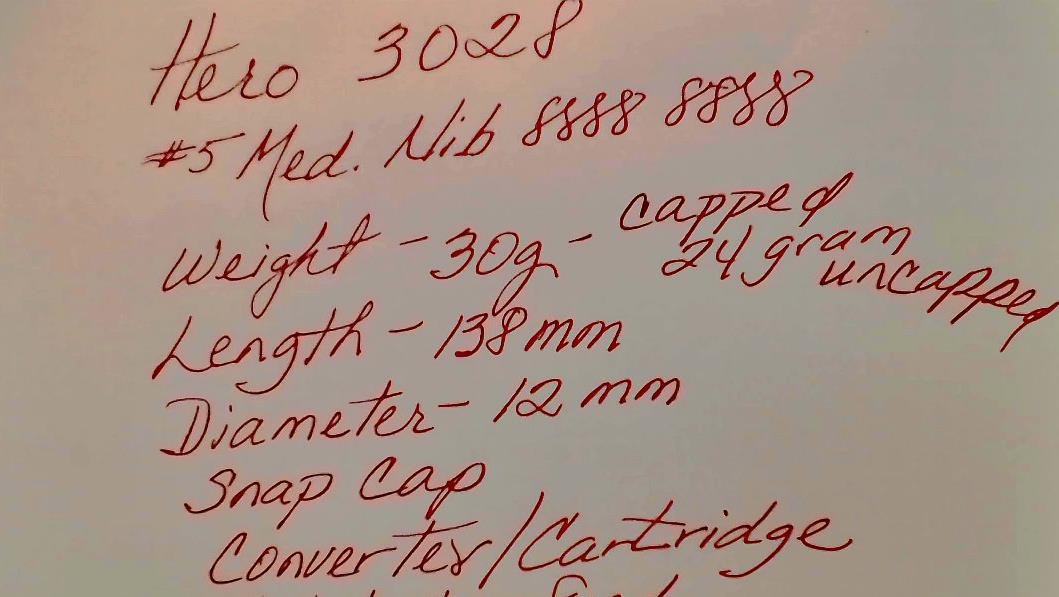 Hero 3028
#5 Med. Nib 8888 8888
Weight - 30g - capped
24 gram
uncapped
Length - 138mm
Diameter - 12 mm
Snap Cap
Converter/Cartridge